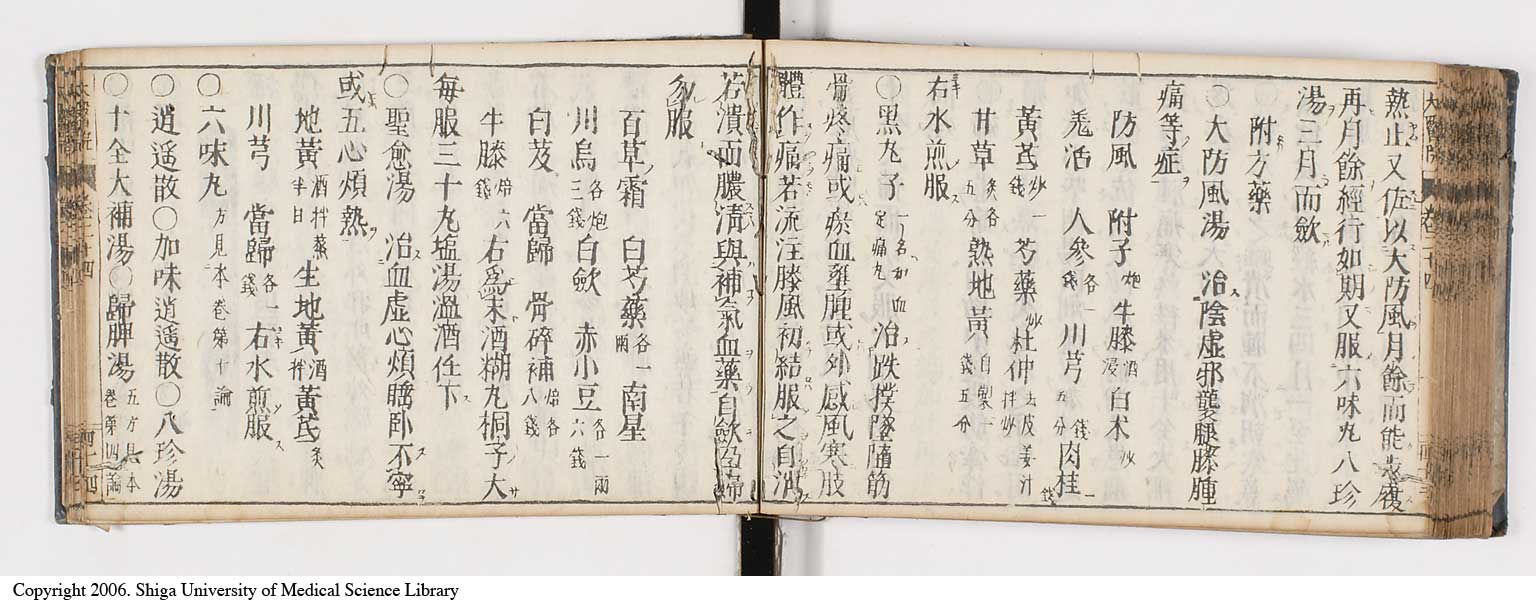 熱止又佐以大防風月餘而能
再月餘經行如期又服六味丸八珍
湯三月而歛
附方藥
○大防風湯 治陰虛邪襲腿膝腫
痛等症
防風 附子炮 牛膝酒浸 白朮炒
羗活 人參各一錢 川芎錢五分 肉桂一錢
黃芪炒一錢 芍藥炒 杜仲去皮姜汁拌炒
甘草炙各五分 熟地黃自製一錢五分
右水煎服
○黑丸子一名和血定痛丸 治跌撲墜墮筋
骨疼痛或瘀血壅腫或外感風寒肢
體作痛若流注膝風初結服之自消
若潰而膿淸與補氣血藥自歛孕婦
勿服
百草霜 白芍藥各一兩 南星
川烏各炮三錢 白歛 赤小豆各一兩六錢
白芨 當歸 骨碎補焙各八錢
牛膝焙六錢 右爲末酒糊丸桐子大
每服三十丸塩湯溫酒任下
○聖愈湯 治血虛心煩睡臥不寧
或五心煩熱
地黃酒拌蒸半日 生地黃酒拌 黃芪炙
川芎 當歸各一錢 右水煎服
○六味丸方見本卷第十論
○逍遥散○加味逍遥散○八珍湯
○十全大補湯○歸脾湯五方見本卷第四論
Copyright 2006. Shiga University of Medical Science Library